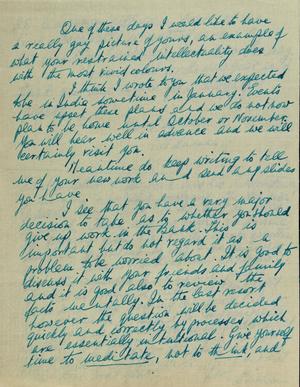 One of these days I would like to have
a really gay picture of yours, an example of
what your restrained intellectuality does
with the most vivid colours.
I think I wrote to you that we expected
to be in India sometime in January. Events
have upset these plans and we do not now
plan to be home until October or November.
You will hear well in advance and we will
certainly visit you.
Meantime do keep writing to tell
me of your new work and send any slides
you have.
I see that you have a very major
decision to take as to whether you should
give up work in the Bank. This is
important but do not regard it as a
problem to be worried about. It is good to
discuss it with your friends and family
and it is good also to review the
facts mentally. In the last resort
however the question will be decided
quickly and correctly by processes which
are essentially intuitional. Give yourself
time to meditate, not to think, and